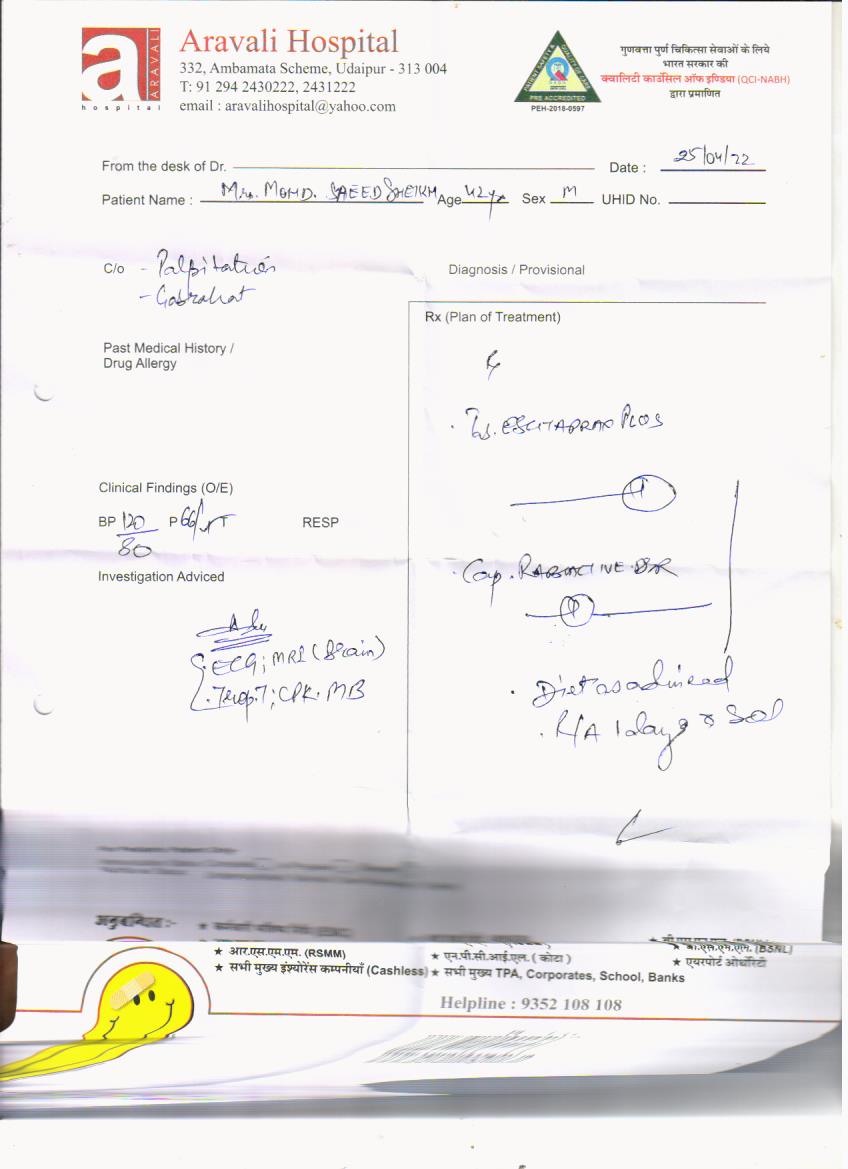 a
ARAVALI
hospital
Aravali Hospital
332, Ambamata Scheme, Udaipur - 313 004
T: 91 294 2430222, 2431222
email : aravalihospital@yahoo.com
PRE ACCREDITED
PEH-2018-0597
गुणवत्ता पुर्ण चिकित्सा सेवाओं के लिये
भारत सरकार की
क्वालिटी काउंसिल ऑफ इण्डिया (QCI-NABH)
द्वारा प्रमाणित
From the desk of Dr.
Date : 25/04/22
Patient Name : Mr. MOHD. SAEED SHEIKH Age 42yr Sex M UHID No.
C/o - Palpitation
- Gabrahat
Diagnosis / Provisional
Past Medical History /
Drug Allergy
Rx (Plan of Treatment)
Clinical Findings (O/E)
BP 120/80 P 66/ T RESP
Investigation Adviced
ECG; MRI (Brain)
Trop.T; CPK.MB
Rx
. PLUS
. Cap.
. Diet as advised
. 1 day
अनुबन्धित :-
★ आर.एस.एम.एम. (RSMM)
★ एन.पी.सी.आई.एल. ( कोटा )
★ एयरपोर्ट ऑथोरिटी
★ सभी मुख्य इंश्योरेंस कम्पनीयाँ (Cashless) ★ सभी मुख्य TPA, Corporates, School, Banks
Helpline : 9352 108 108